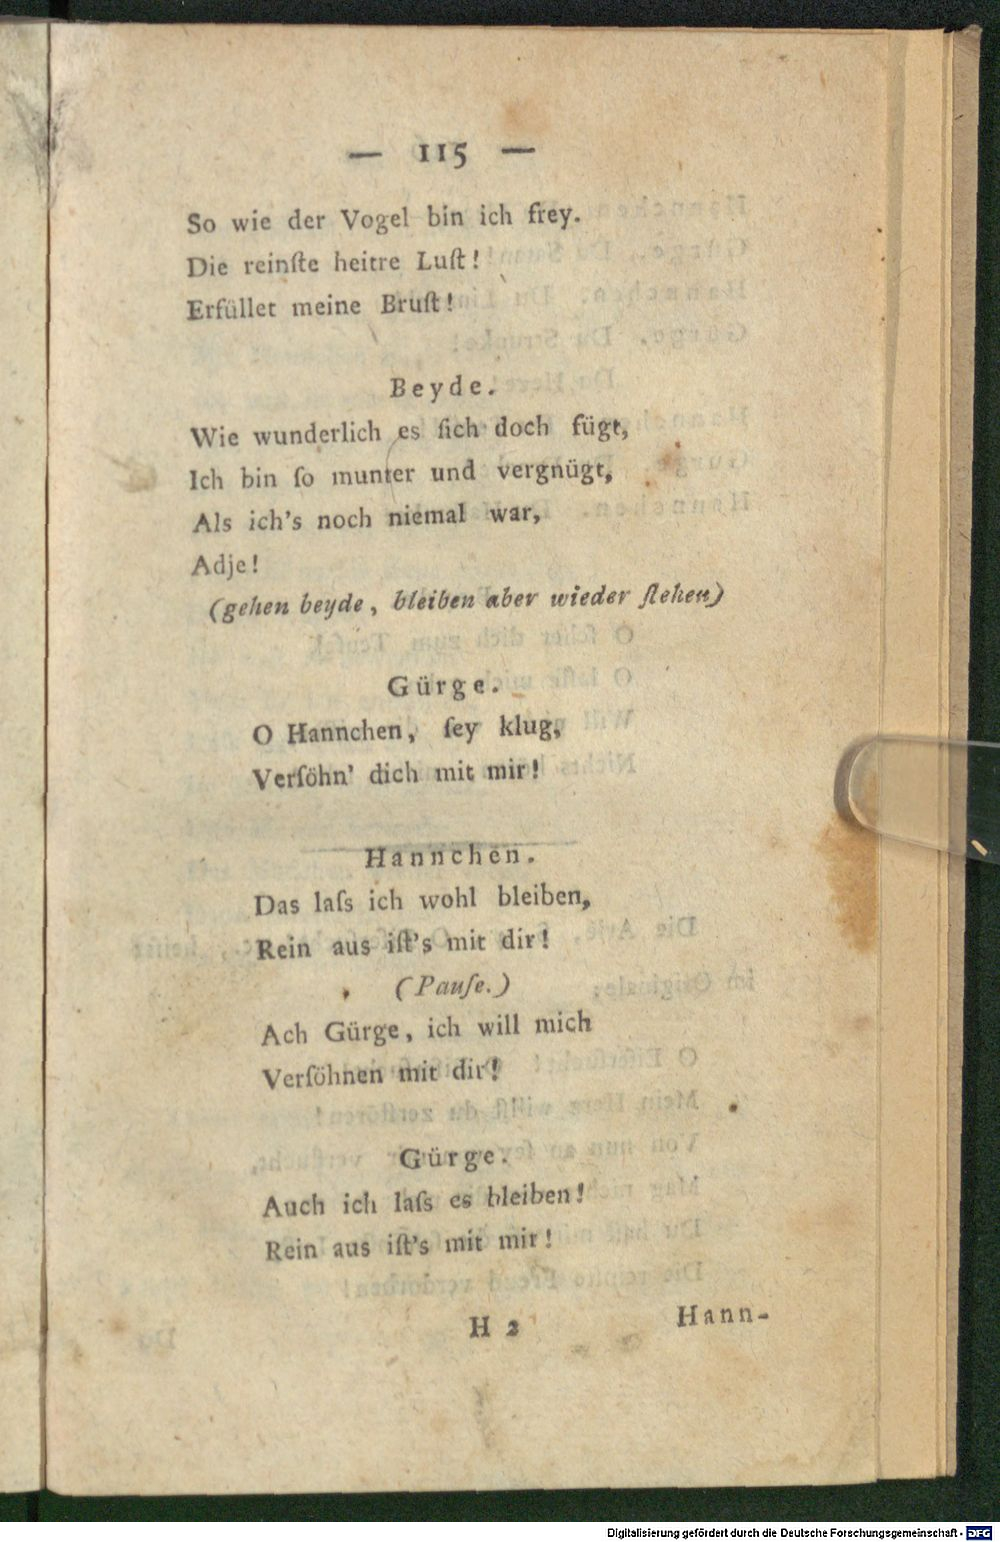 — 115 —
So wie der Vogel bin ich frey.
Die reinſte heitre Luſt!
Erfüllet meine Bruſt!
Beyde.
Wie wunderlich es ſich doch fügt,
Ich bin ſo munter und vergnügt,
Als ich's noch niemal war,
Adje!
(gehen beyde, bleiben aber wieder ſtehen)
Gürge.
O Hannchen, ſey klug,
Verſöhn' dich mit mir!
Hannchen.
Das laſs ich wohl bleiben,
Rein aus iſt's mit dir!
(Pauſe.)
Ach Gürge, ich will mich
Verſöhnen mit dir!
Gürge.
Auch ich laſs es bleiben!
Rein aus iſt's mit mir!
H 2 Hann-
Digitalisierung gefördert durch die Deutsche Forschungsgemeinschaft - DFG